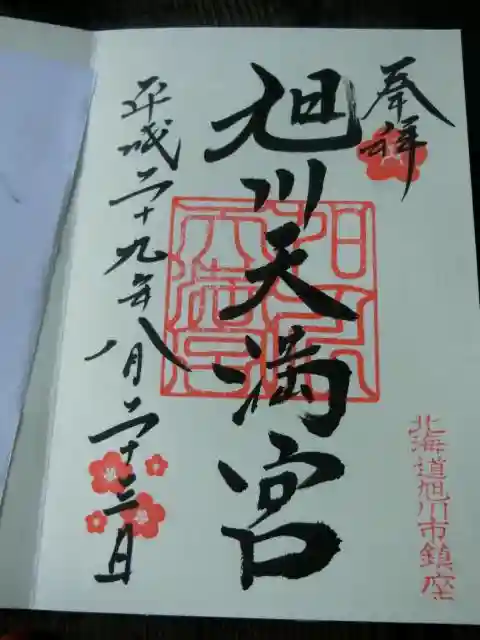 奉拝
北海道旭川市鎮座
旭川天満宮
平成二十九年八月二十三日